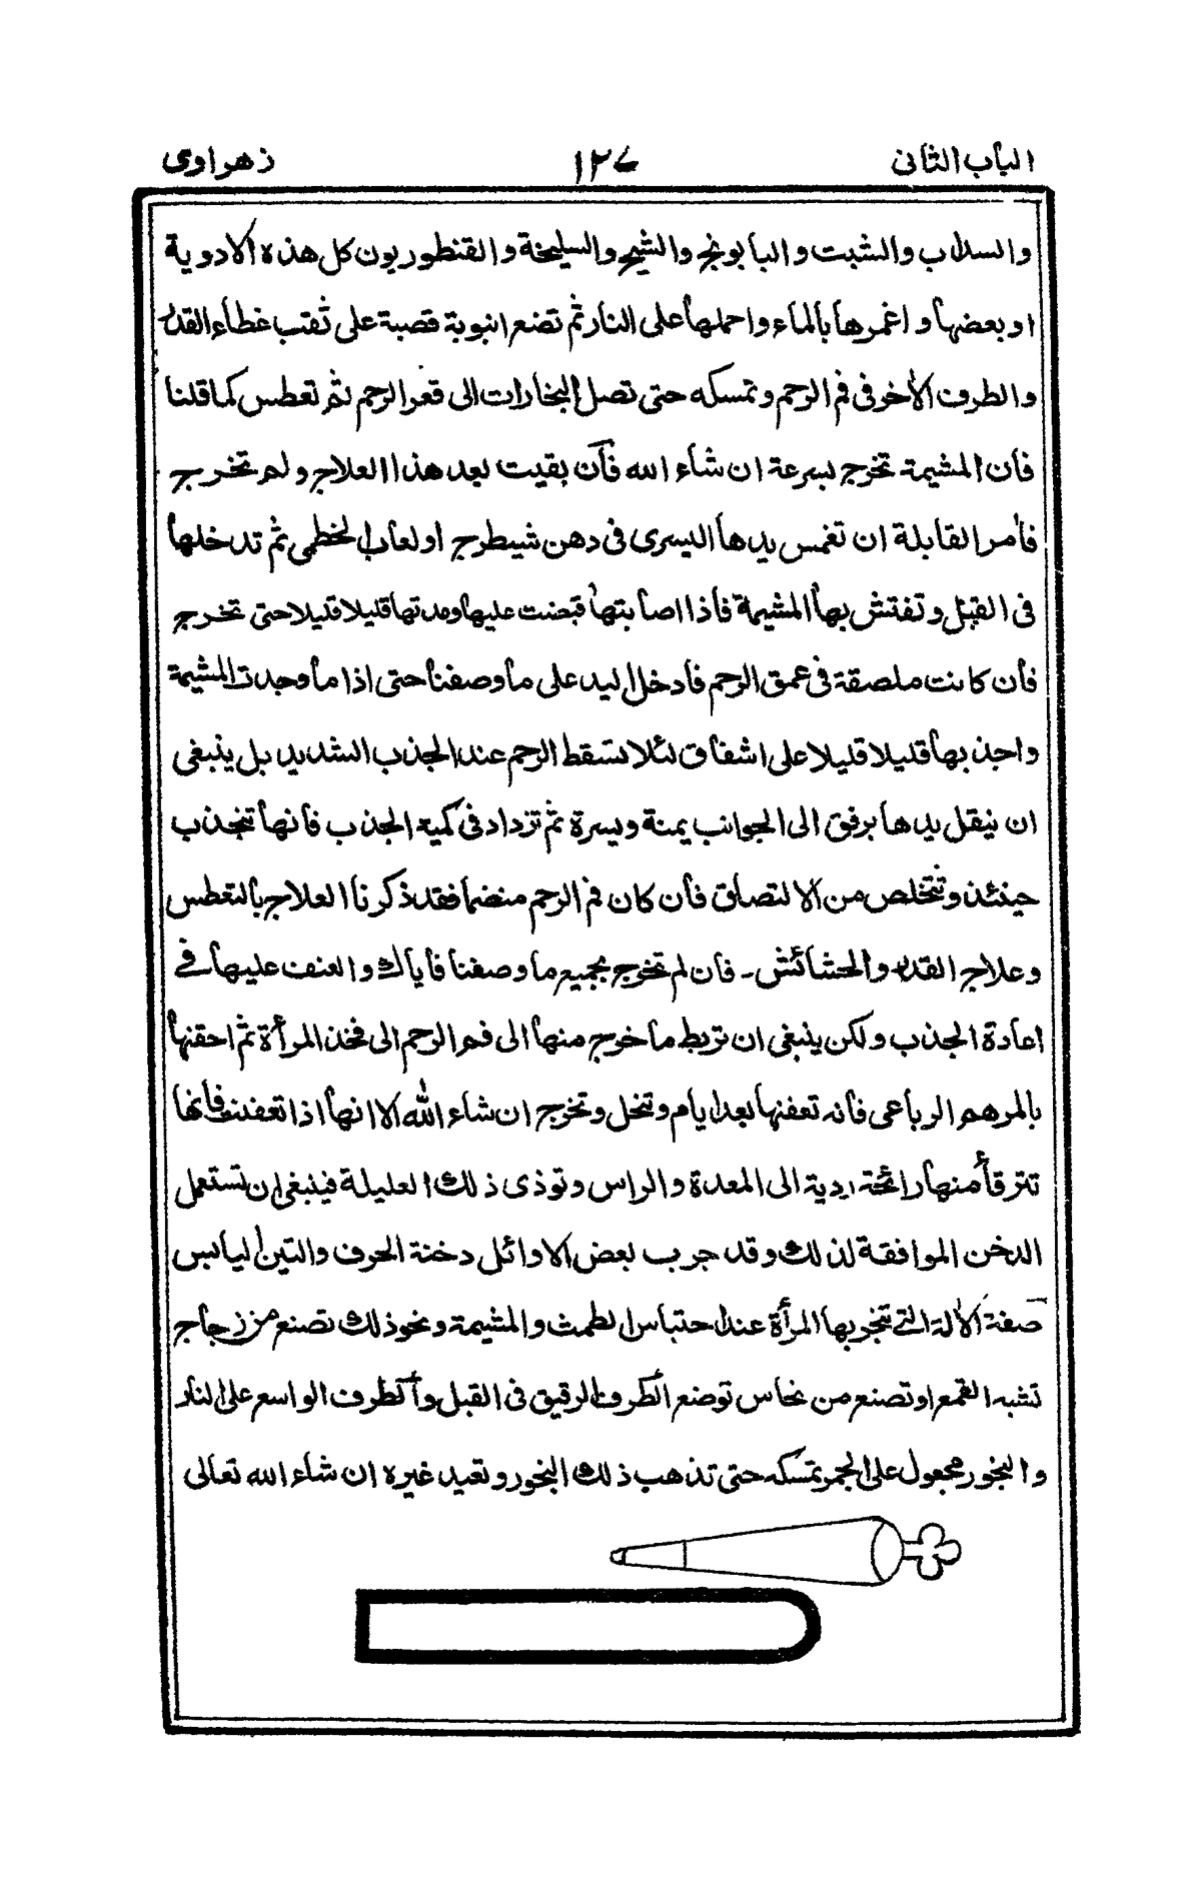 الباب الثانى ١٢٧ زهراوى
والسذاب والشبت والبابونج والشيح والسليخة والقنطوريون كل هذه الادوية
او بعضها واغمرها بالماء واحملها على النار ثم تضع انبوبة قصبة على ثقب غطاء القدر
والطرف الأخر فى فم الرحم وتمسكه حتى تصل البخارات الى قعر الرحم ثم تعطس كما قلنا
فان المشيمة تخرج بسرعة ان شاء الله فآن بقيت بعد هذا العلاج ولم تخرج
فأمر القابلة ان تغمس يدها اليسرى فى دهن شيطرج او لعاب الخطمى ثم تدخلها
فى القبل وتفتش بها المشيمة فاذا اصابتها قبضت عليها ومدتها قليلا قليلا حتى تخرج
فأن كانت ملصقة فى عمق الرحم فأدخل اليد على ما وصفنا حتى اذا ما وجدت المشيمة
واجذبها قليلا قليلا على اشفاق لئلا تسقط الرحم عند الجذب الشديد بل ينبغى
ان ينقل يدها برفق الى الجوانب يمنة ويسرة ثم تزداد فى كمية الجذب فانها تنجذب
حينئذ وتتخلص من الالتصاق فأن كان فم الرحم منضما فقد ذكرنا العلاج بالتعطس
وعلاج القدر والحشائش - فان لم تخرج بجميع ما وصفنا فاياك والعنف عليها فے
اعادة الجذب ولكن ينبغى ان تربط ما خرج منها الى فم الرحم الى فخذ المرأة ثم احقنها
بالمرهم الرباعى فانه تعفنها بعد ايام وتنحل وتخرج ان شاء الله الا انها اذا تعفنت فانها
تترقأ منها رائحة ردية الى المعدة والراس وتوذى ذلك العليلة فينبغى ان تستعمل
الدخن الموافقة لذلك وقد جرب بعض الاوائل دخنة الحرف والتين اليابس
صفة الألة التے تتبخر بها المرأة عند احتباس الطمث والمشيمة ونحو ذلك تصنع من زجاج
تشبه القمع او تصنع من نحاس توضع الطرف الرقيق فى القبل والطرف الواسع على النار
والبخور مجعول على الجمر تمسكه حتى تذهب ذلك البخور وتعيد غيره ان شاء الله تعالى